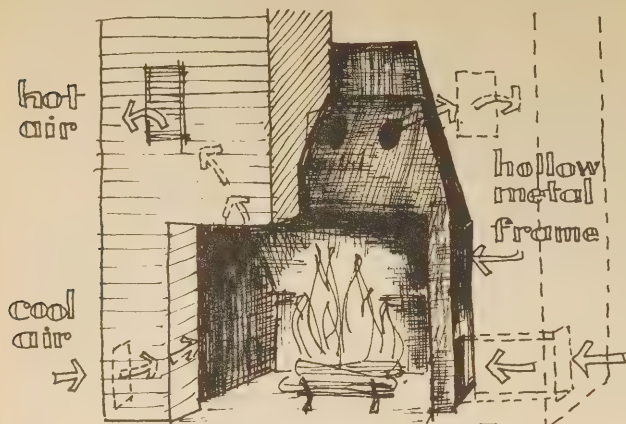 hot
air
hollow
metal
frame
cool
air